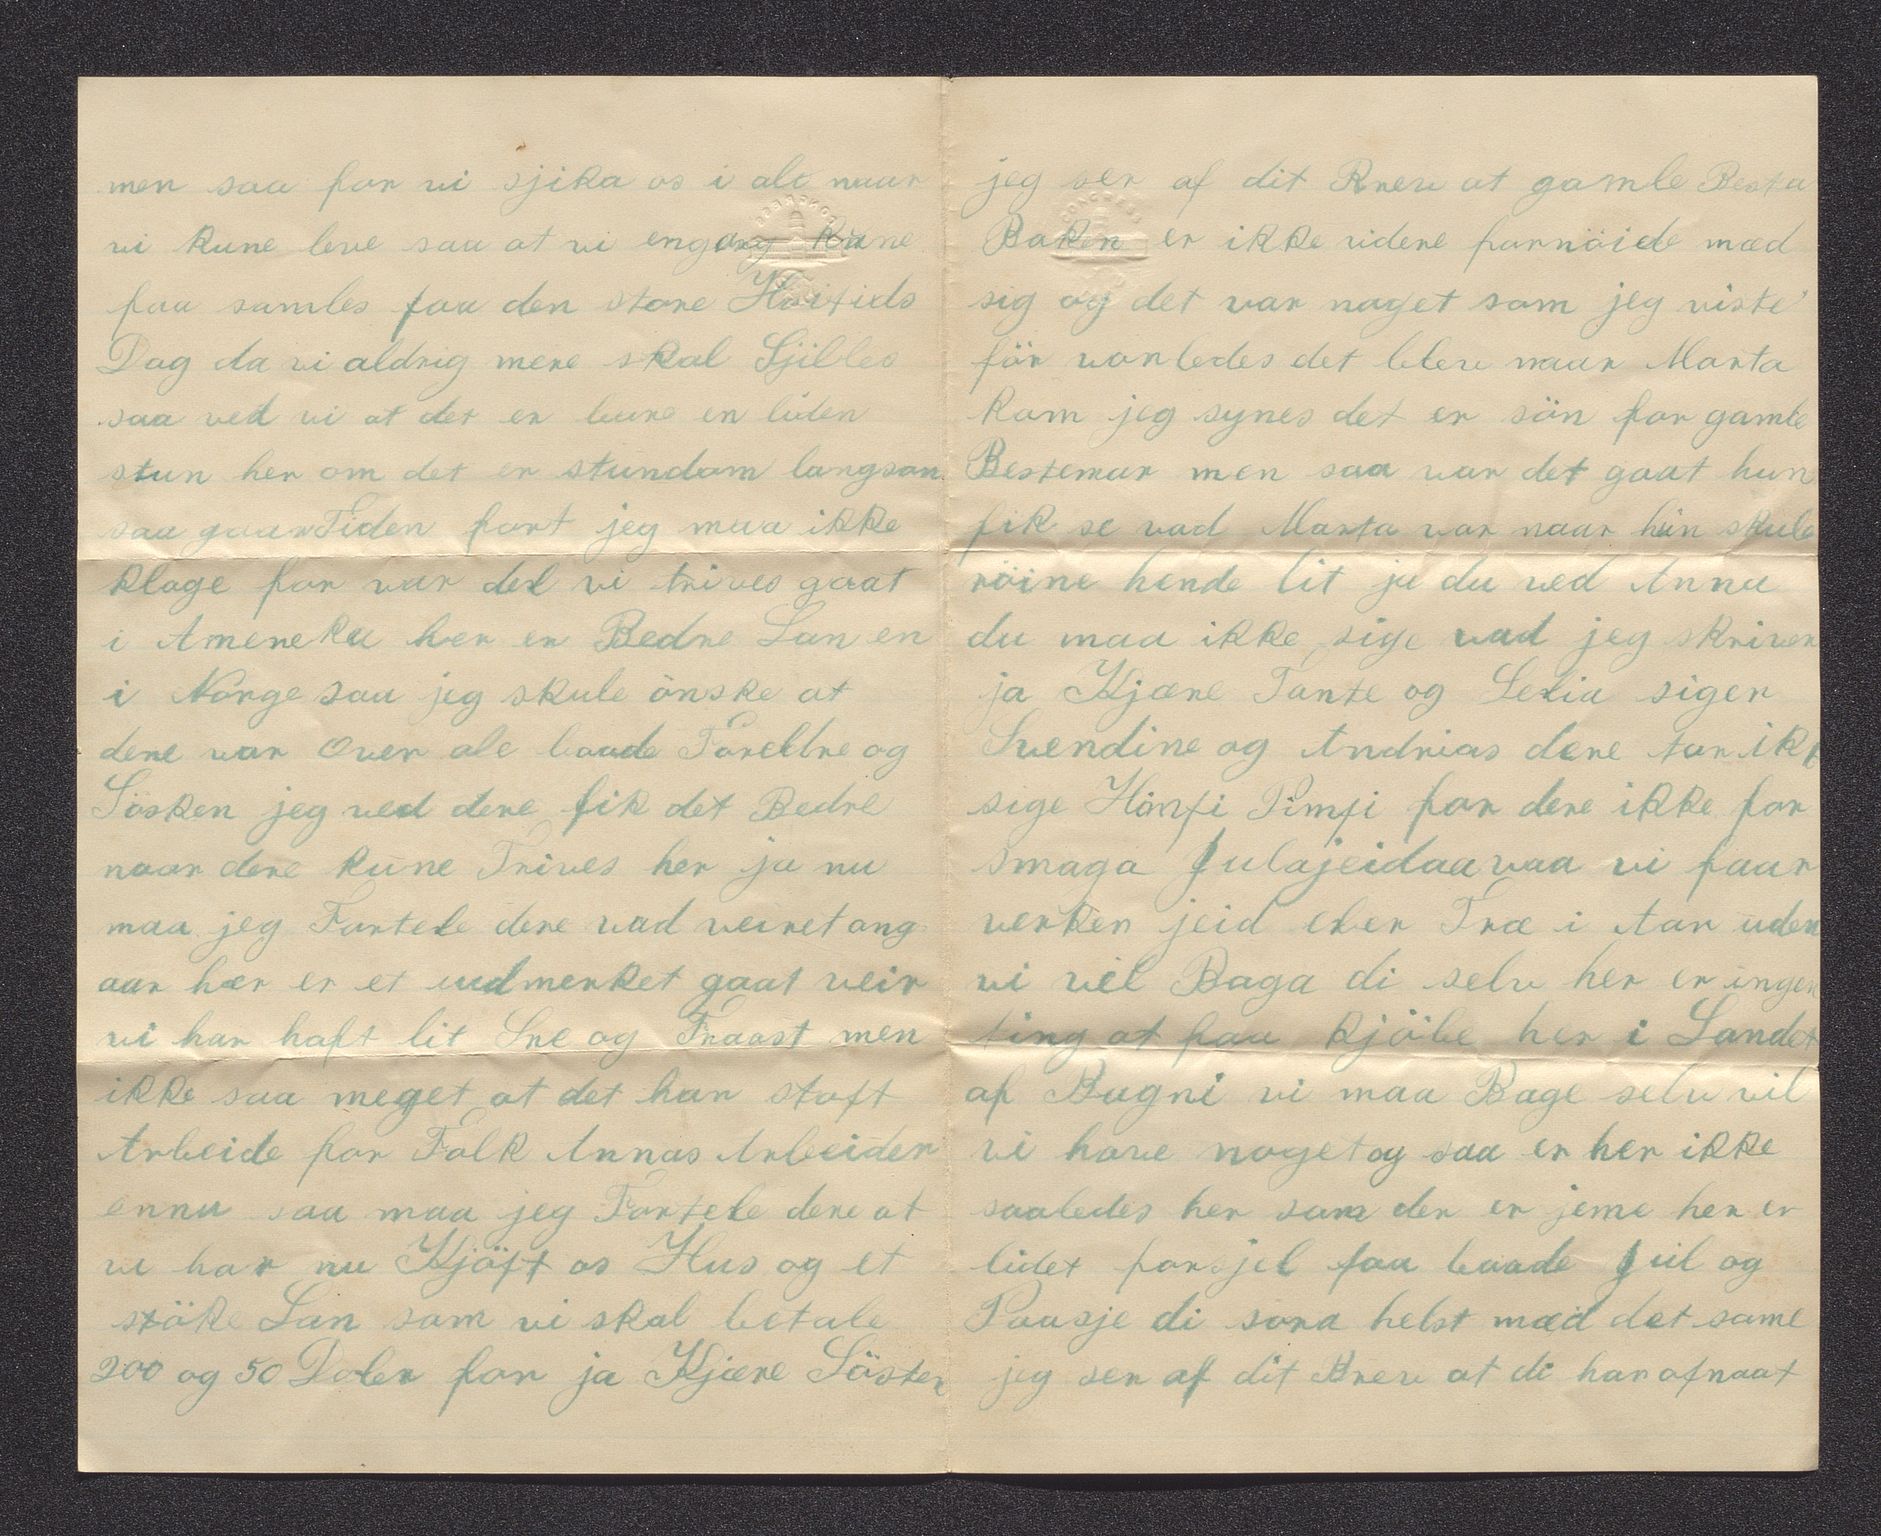 men saa for vi sjika os i alt naar
vi kune leve saa at vi engang kune
faa samles paa den store Høitids
Dag da vi aldrig mere skal Sjilles
saa ved vi at det er bare en liden
stun her om det er stundom langsom
saa gaar Tiden fort jeg maa ikke
klage for vor del vi trives goat
i Amereka her er Bedre Lan en
i Norge saa jeg skule önske at
dere var over ale baade Foreldre og
Sösken jeg ved dere fik det Bedre
naar dere kune Trives her ja nu
maa jeg Fortele dere vad veiret ang
aar her er et udmerket goat veir
vi har haft lit Sne og Fraast men
ikke saa meget at det har stoft
Arbeide for Folk Annas Arbeider
ennu saa maa jeg Fortele dere at
vi har nu Kjöft os Hus og et
stöke Lan som vi skal betale
200 og 50 Doler for ja Kjære Söster
jeg ser af dit Brev at gamle Besta
Baken er ikke videre fornöide med
sig og det var noget som jeg viste
för vorledes det blev naar Marta
kom jeg synes det er sön for gamle
Bestemor men saa var det goat hun
fik se vad Marta var naar hun skule
röine hende lit ja du ved Anna
du maa ikke sige vad jeg skriver
ja Kjære Tante og Selia siger
Svendine og Andrias dere tor ikke
sige Himpi Pimpi for dere ikke for
smaga Julajeidaavaa vi faar
verken jeid eler Træ i Aar uden
vi vil Baga di selv her er ingen
ting at faa kjöbe her i Landet
af Bagni vi maa Bage selv vil
vi have noget og saa er her ikke
saaledes her som der er jeme her er
lidet forsjel paa baade Jul og
Paasje di sora helst med det same
jeg ser af dit Brev at di har ofnaat